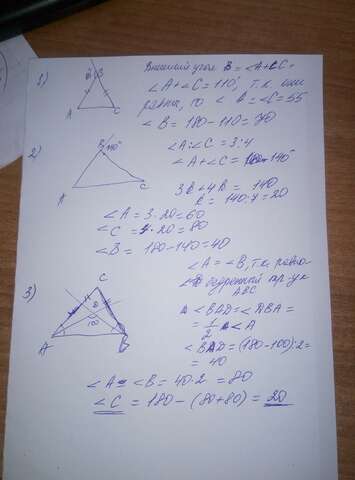 1)
B
A
C
Внешний угол B = ∠A+∠C =
∠A+∠C = 110°, т.к они
равны, то ∠ =∠C = 55
∠B = 180-110 = 70
2)
B
140°
A
C
∠A:∠C = 3:4
∠A+∠C = 140°
3k+4k = 140
k = 140:7=20
∠A = 3·20=60
∠C = 4·20=80
∠B = 180-140=40
3)
C
100
A
B
∠A = ∠B, т.к равно
бедренный тр-ук
ABC
∠BAD=∠DBA=
= 1/2 ∠A
∠BAD=(180-100):2=
= 40
∠A = ∠B = 40·2 = 80
∠C = 180-(80+80) = 20